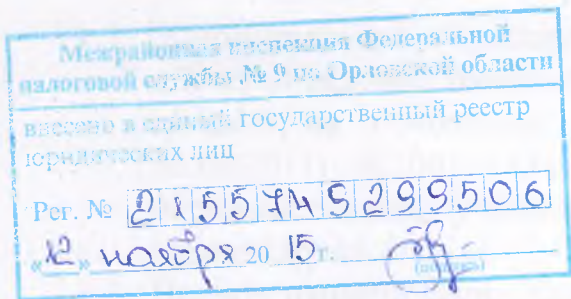 Межрайонная инспекция Федеральной
налоговой службы № 9 по Орловской области
внесено в единый государственный реестр
юридических лиц
Рег. № 2155749299506
«12» ноября 20 15 г.
(подпись)